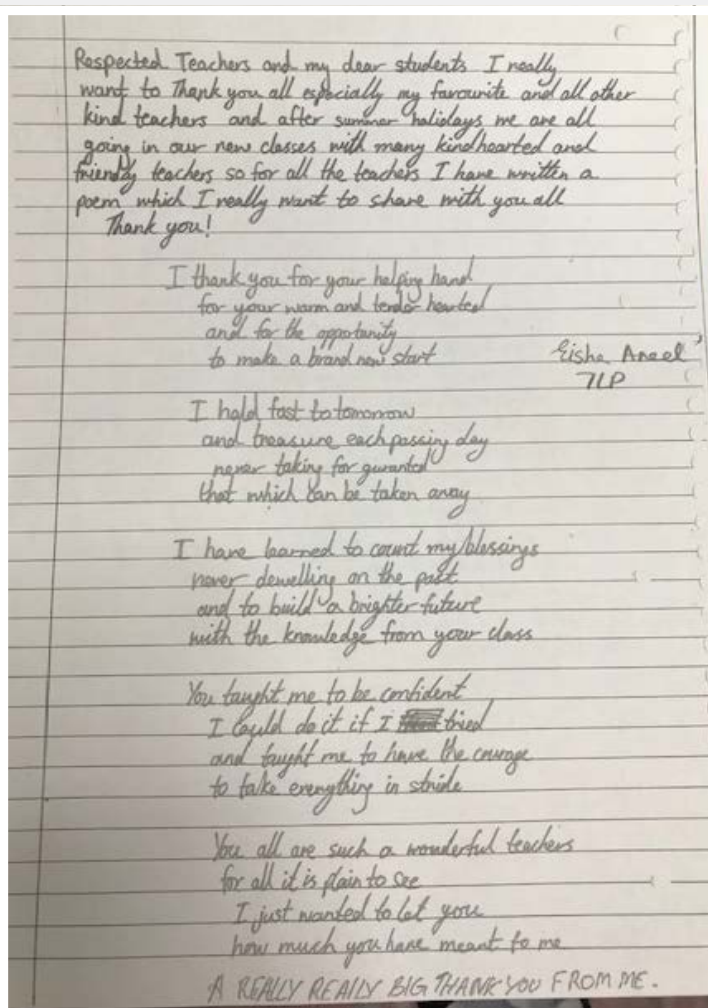 Respected Teachers and my dear students I really
want to Thank you all especially my favourite and all other
kind teachers and after summer halidays we are all
going in our new classes with many kindhearted and
friendly teachers so for all the teachers I have written a
poem which I really want to share with you all
Thank you!
I thank you for your helping hand
for your warm and tender hearted
and for the oppotunity
to make a brand new start
Eisha Aneel
7LP
I hold fast to tomorrow
and treasure each passing day
never taking for guranted
that which can be taken away
I have learned to count my blessings
never dewelling on the past
and to build a brighter future
with the knowledge from your class
You taught me to be confident
I could do it if I tried
and taught me to have the courage
to take everything in stride
You all are such a wonderful teachers
for all it is plain to see
I just wanted to let you
how much you have meant to me
A REALLY REALLY BIG THANK YOU FROM ME.